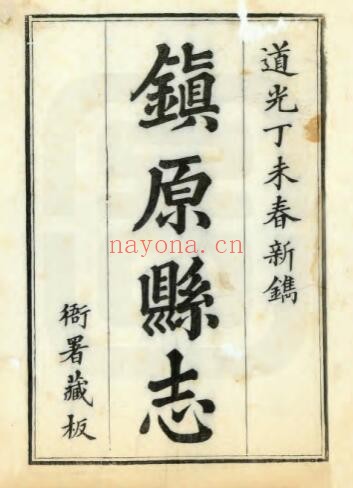 道光丁未春新鐫
鎮原縣志
衙署藏板
nayona.cn